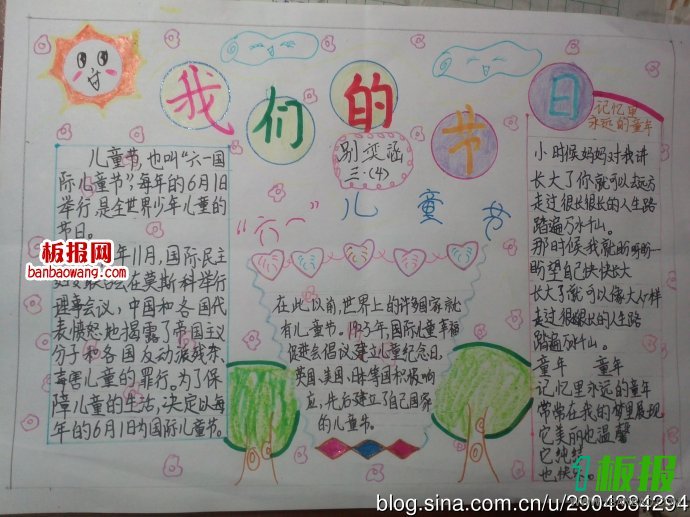 我们的节日
别奕涵
三·(4)
"六一" 儿童节
儿童节,也叫"六一国
际儿童节",每年的6月1日
举行,是全世界少年儿童的
节日。
年11月,国际民主
妇女联合会在莫斯科举行
理事会议,中国和各国代
表愤怒地揭露了帝国主义
分子和各国反动派残杀、
毒害儿童的罪行。为了保
障儿童的生活,决定以每
年的6月1日为国际儿童节。
在此以前,世界上的许多国家就
有儿童节。1925年,国际儿童幸福
促进会倡议建立儿童纪念日,
英国、美国、日本等国积极响
应,先后建立了自己国家
的儿童节。
记忆里
永远的童年
小时候妈妈对我讲
长大了你就可以去远方
走过很长很长的人生路
踏遍万水千山。
那时候我就盼呀盼
盼望自己快快长大
长大了就可以像大人一样
走过很长很长的人生路
踏遍万水千山。
童年 童年
记忆里永远的童年
常常在我的梦里展现
它美丽也温馨
它纯结
也快乐。
板报网
banbaowang.com
板报
blog.sina.com.cn/u/2904384294